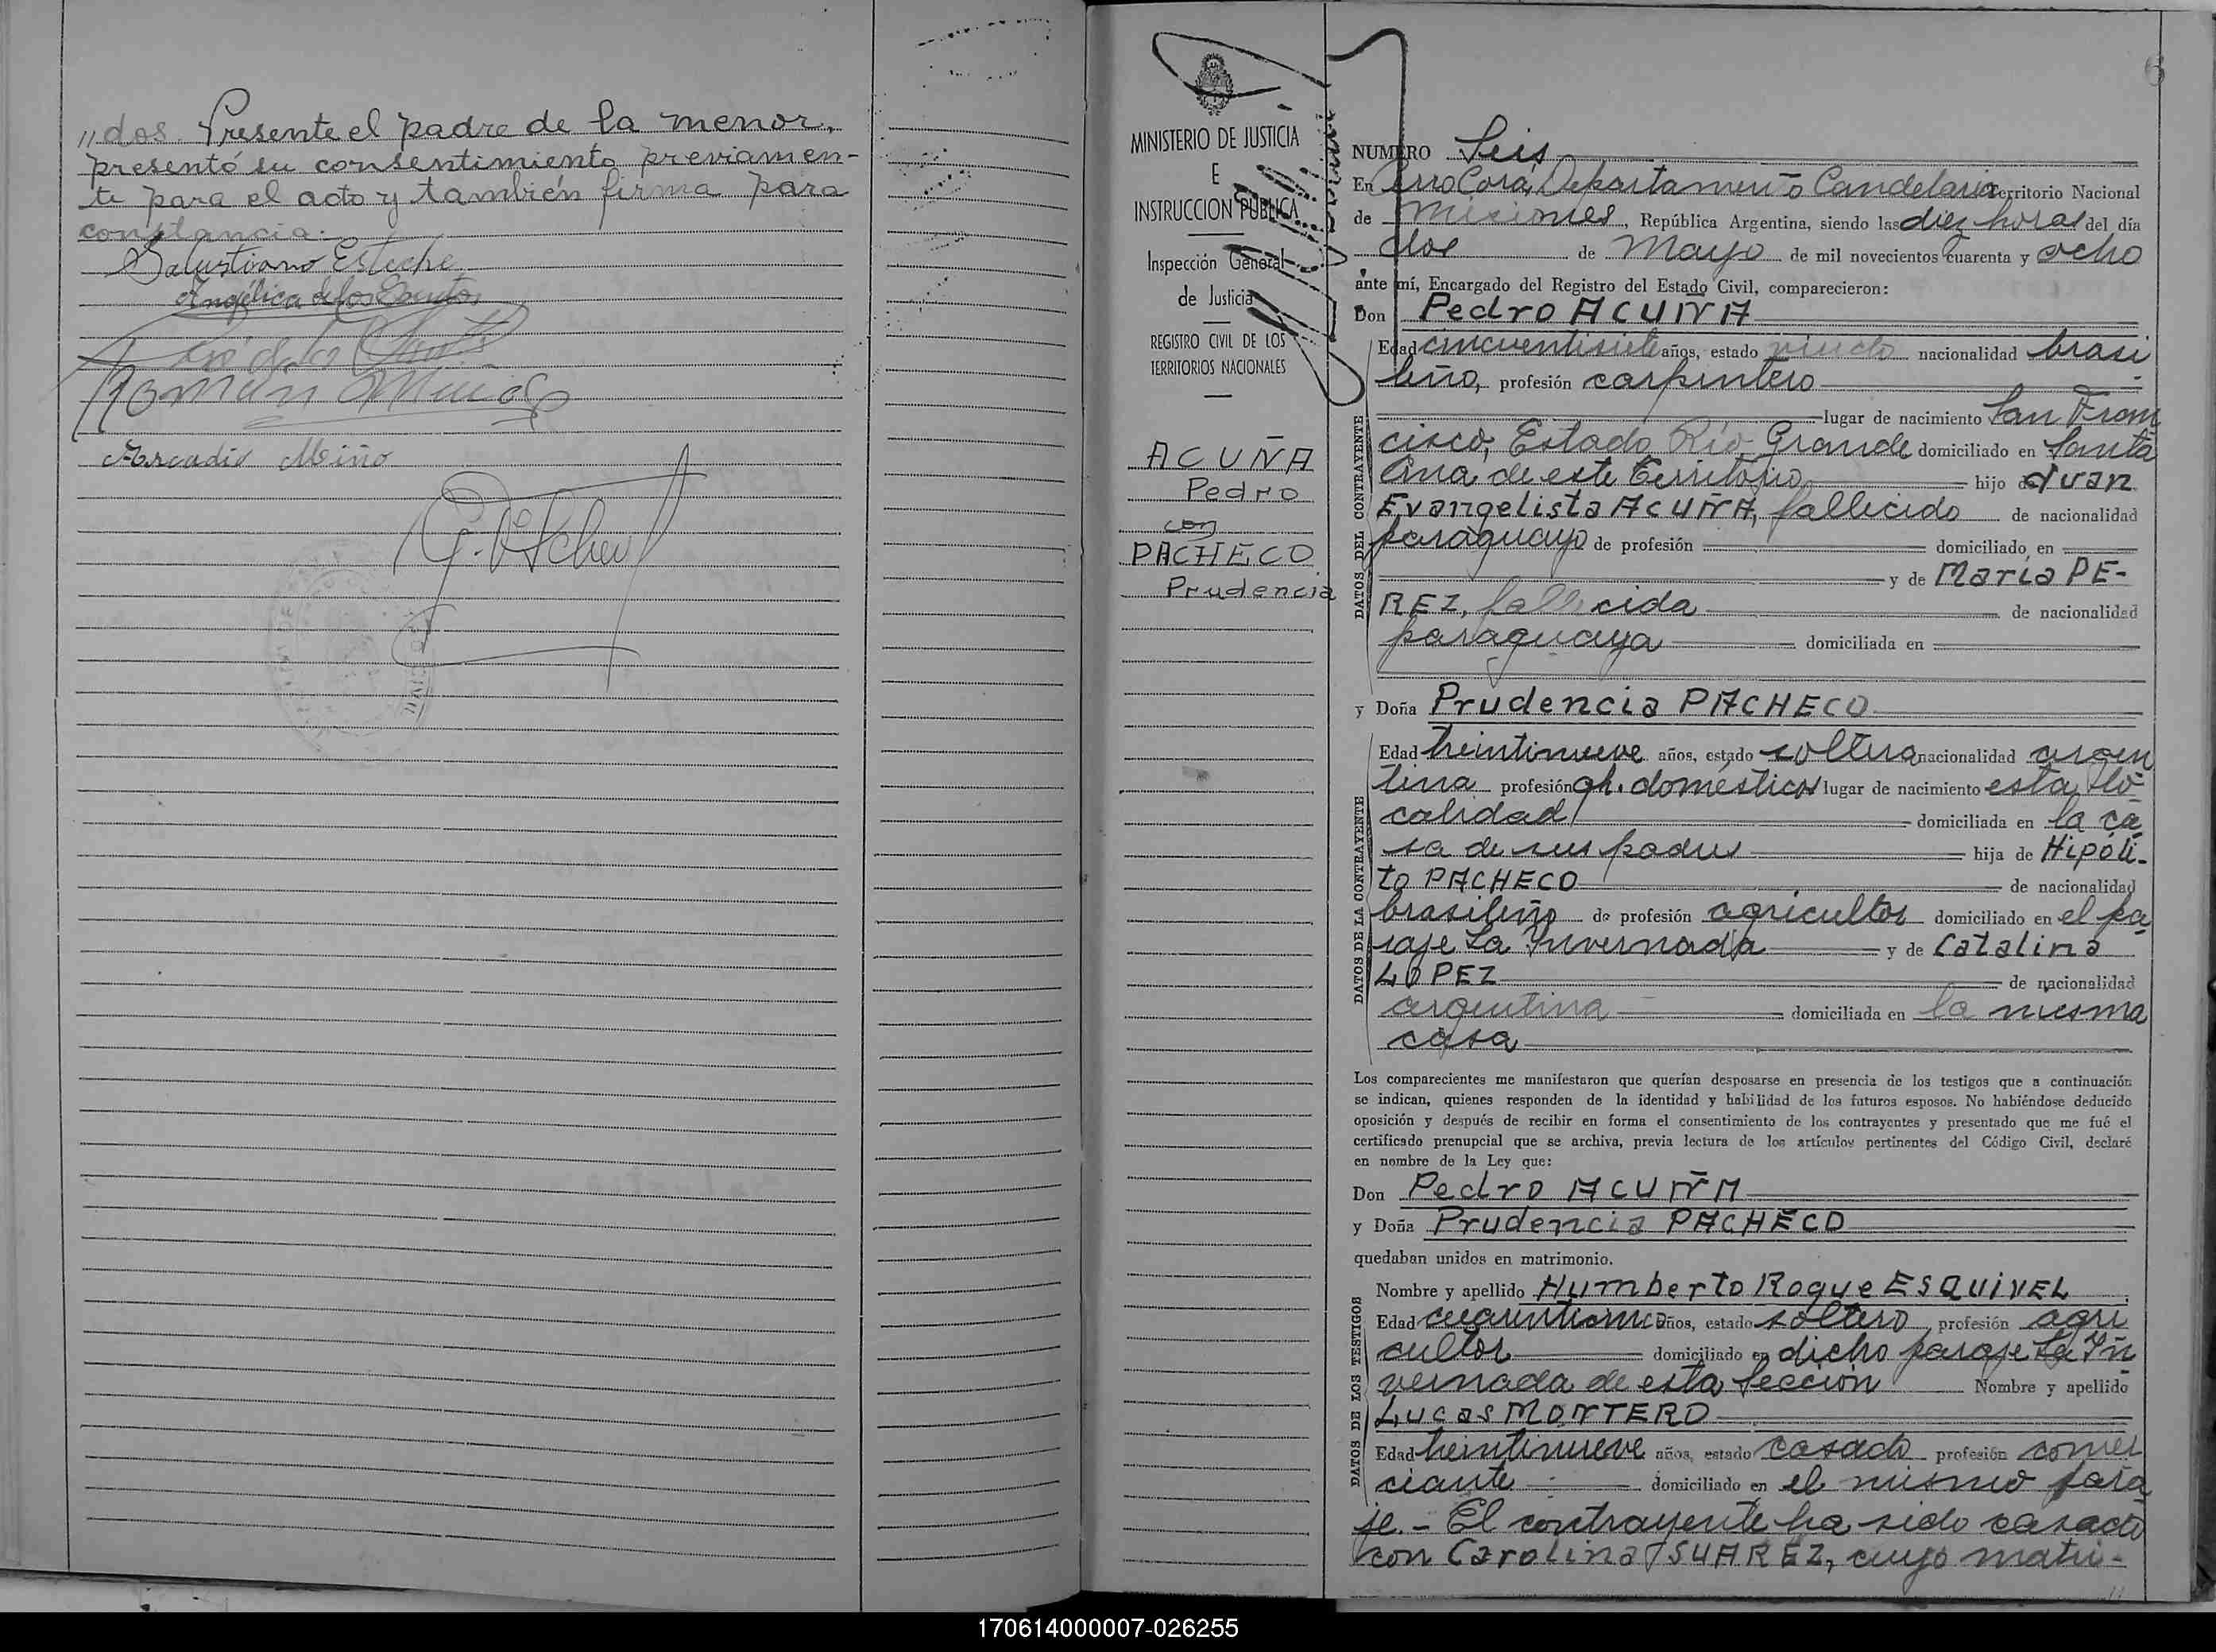 //dos. Presente el padre de la menor,
presentó su consentimiento previamen-
te para el acto y también firma para
constancia.
Salustiano Esteche
Angélica de los Santos
Román
Arcadio Miño
6
MINISTERIO DE JUSTICIA
E
INSTRUCCION PUBLICA
Inspección General
de Justicia
REGISTRO CIVIL DE LOS
TERRITORIOS NACIONALES
ACUÑA
Pedro
con
PACHECO
Prudencia
NUMERO Seis
En Cerro Corá, Departamento Candelaria Territorio Nacional
de Misiones, República Argentina, siendo las diez horas del día
dos de Mayo de mil novecientos cuarenta y ocho
ante mí, Encargado del Registro del Estado Civil, comparecieron:
Don Pedro ACUÑA
DATOS DEL CONTRAYENTE
Edad cincuentisiete años, estado viudo nacionalidad brasi
leño, profesión carpintero
lugar de nacimiento San Fran
cisco, Estado Río Grande domiciliado en Santa
Ana de este Territorio hijo de Juan
Evangelista ACUÑA, fallecido de nacionalidad
paraguayo de profesión domiciliado en
y de María PE-
REZ, fallecida de nacionalidad
paraguaya domiciliada en
y Doña Prudencia PACHECO
DATOS DE LA CONTRAYENTE
Edad treintinueve años, estado soltera nacionalidad argen
tina profesión qh. domésticos lugar de nacimiento esta lo
calidad domiciliada en la ca
sa de sus padres hija de Hipóli-
to PACHECO de nacionalidad
brasileño de profesión agricultor domiciliado en el pa
raje La Invernada y de Catalina
LOPEZ de nacionalidad
argentina domiciliada en la misma
casa
Los comparecientes me manifestaron que querían desposarse en presencia de los testigos que a continuación
se indican, quienes responden de la identidad y habilidad de los futuros esposos. No habiéndose deducido
oposición y después de recibir en forma el consentimiento de los contrayentes y presentado que me fué el
certificado prenupcial que se archiva, previa lectura de los artículos pertinentes del Código Civil, declaré
en nombre de la Ley que:
Don Pedro ACUÑA
y Doña Prudencia PACHECO
quedaban unidos en matrimonio.
DATOS DE LOS TESTIGOS
Nombre y apellido Humberto Roque ESQUIVEL
Edad cuarenticinco años, estado soltero profesión agri
cultor domiciliado en dicho paraje La In
vernada de esta Sección Nombre y apellido
Lucas MONTERO
Edad treintinueve años, estado casado profesión comer
ciante domiciliado en el mismo para
je.- El contrayente ha sido casado
con Carolina SUAREZ, cuyo matri-
//
170614000007-026255